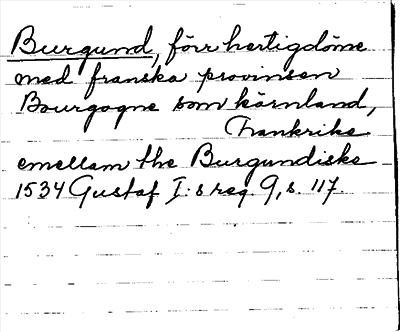 Burgund, förr hertigdöme
med franska provinsen
Bourgogne som kärnland,
Frankrike
emellam the Burgundiske
1534 Gustaf I:s reg. 9, s. 117.